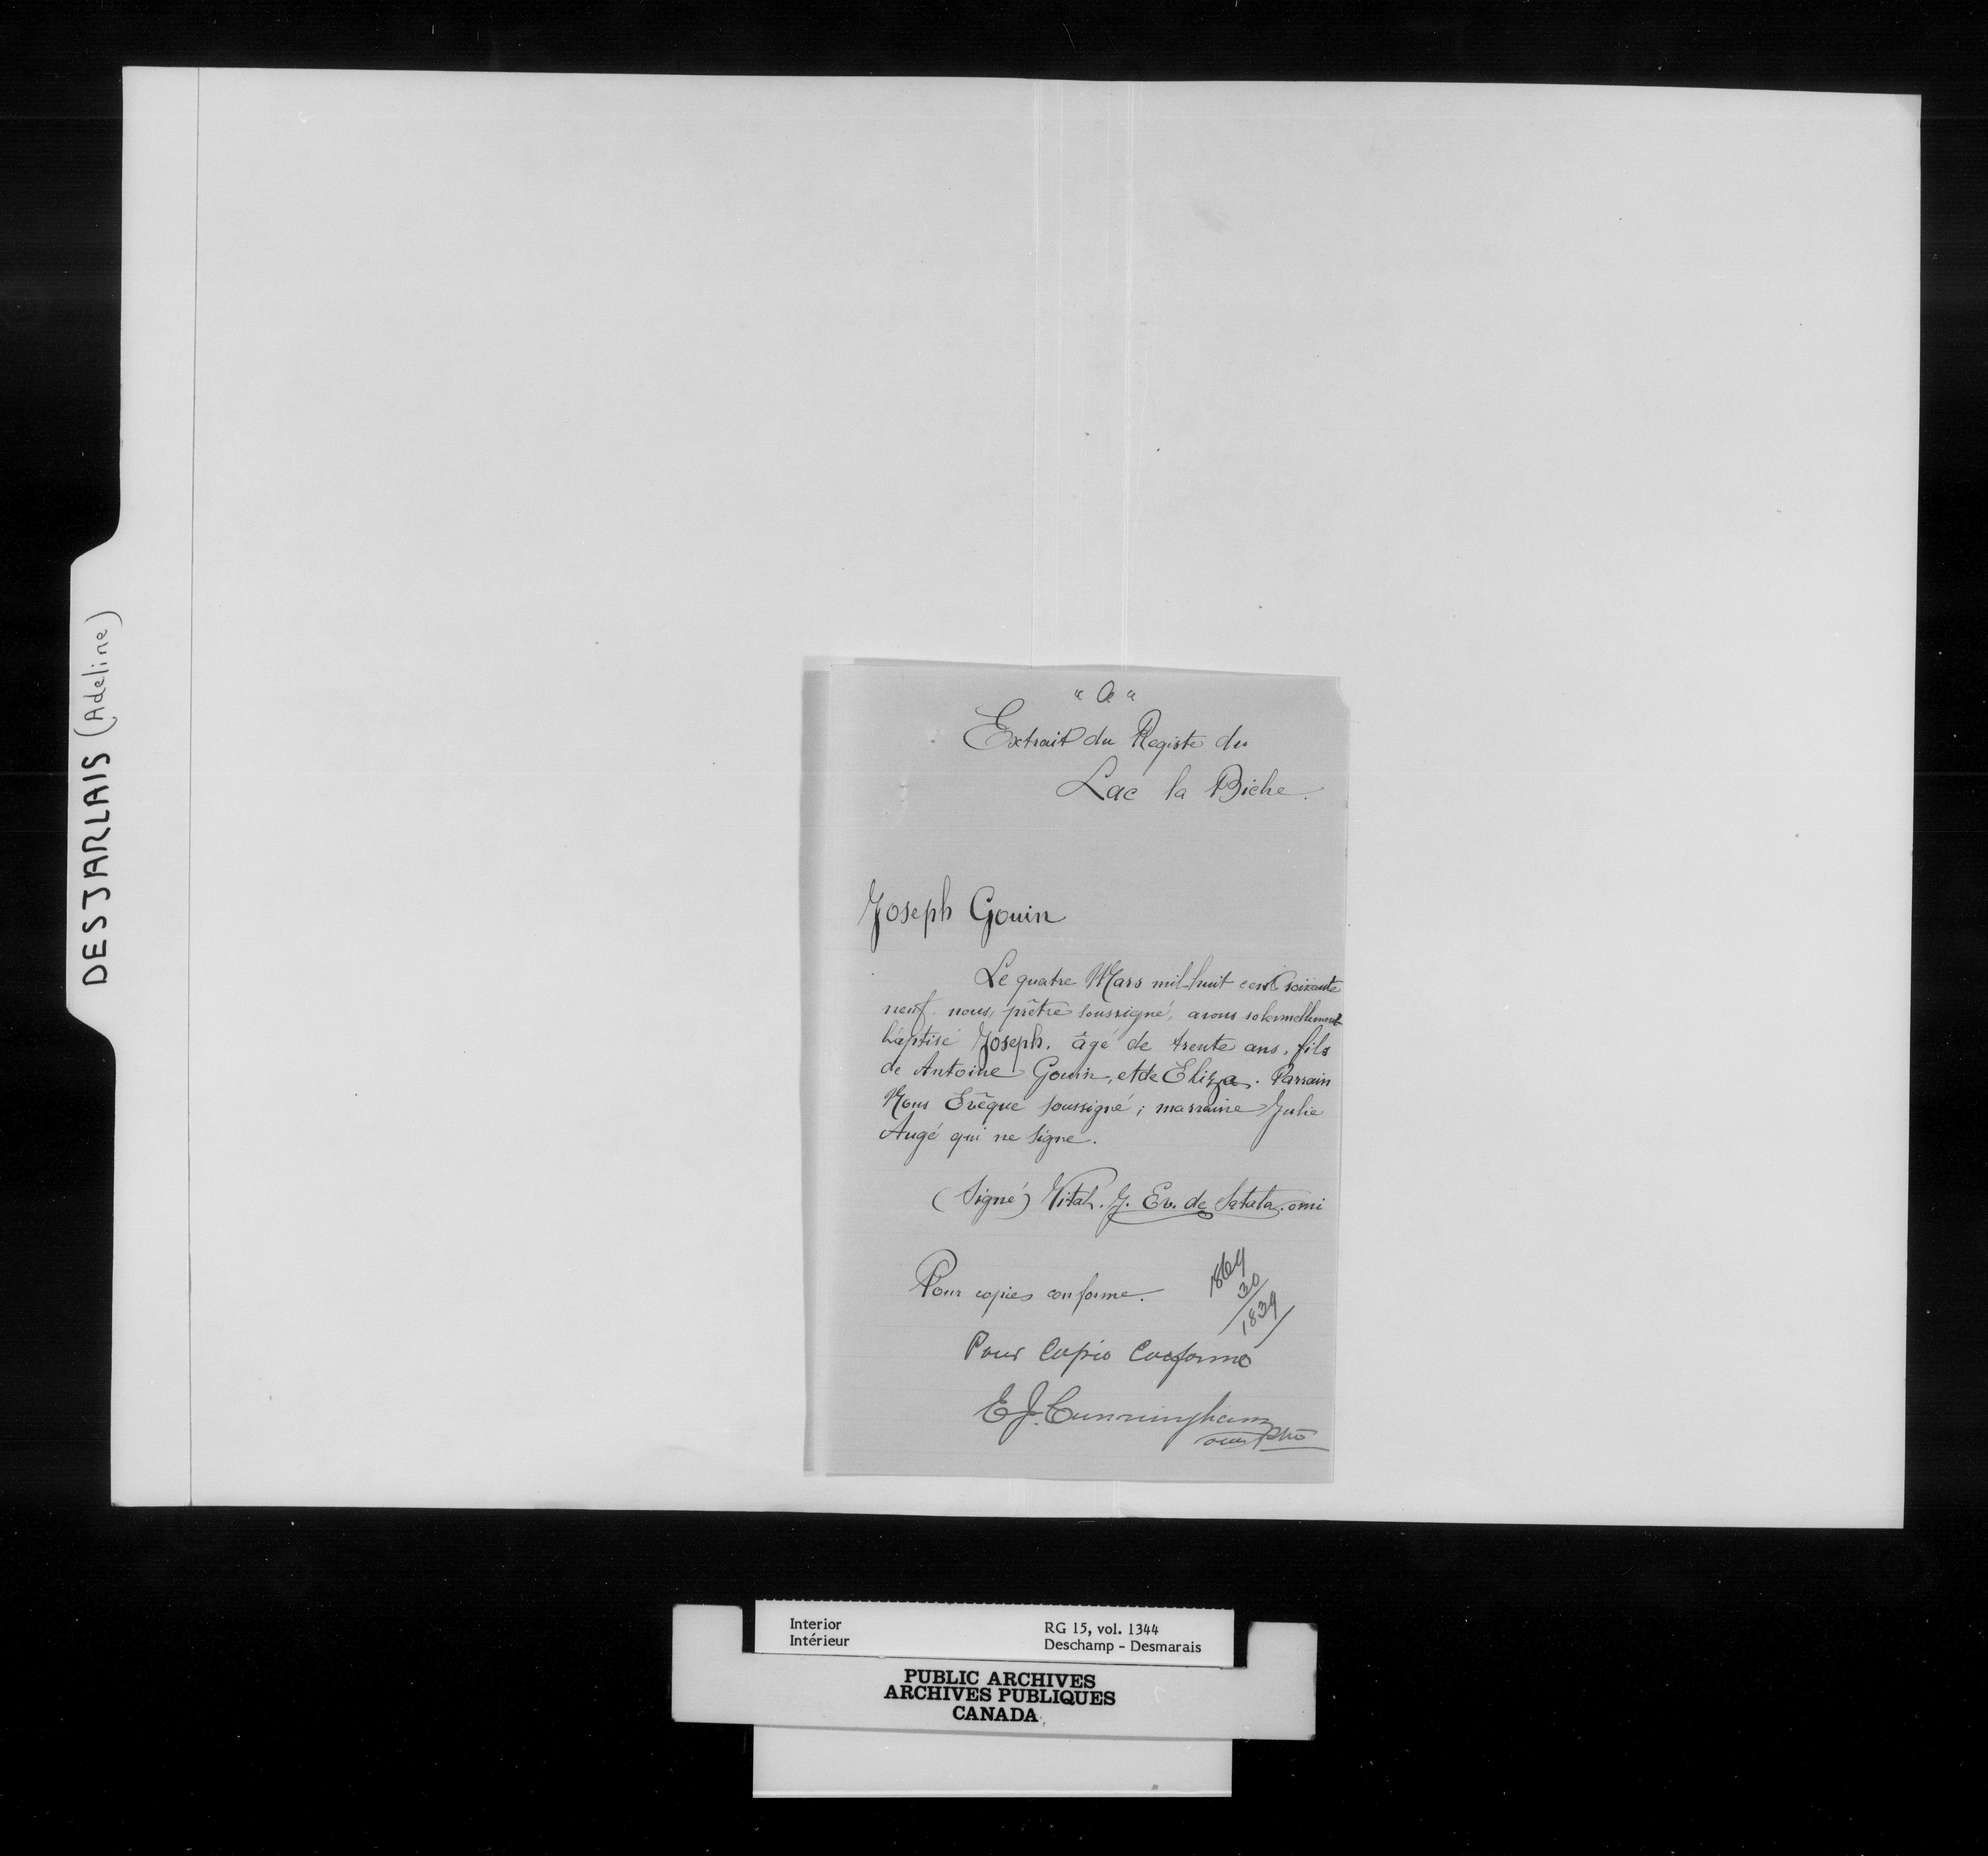 DESJARLAIS (Adeline)
" A "
Extrait du Registe du
Lac la Biche.
Joseph Gouin
Le quatre Mars mil-huit cent soixante
neuf. nous, prêtre soussigné, avons solennellement
baptisé Joseph. âgé de trente ans. fils
de Antoine Gouin, et de Eliza. Parrain
Nous Evêque soussigné; marraine Julie
Augé qui ne signe.
(Signé) Vital. J. Ev. de Satala. omi
Pour copies conforme.
1869
30
1839
Pour Copie Conforme
E J. Cunningham
omi ptre
Interior
Intérieur
RG 15, vol. 1344
Deschamp - Desmarais
PUBLIC ARCHIVES
ARCHIVES PUBLIQUES
CANADA